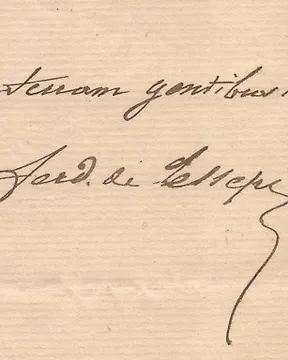 terram gentibus
Ferd. de Lesseps